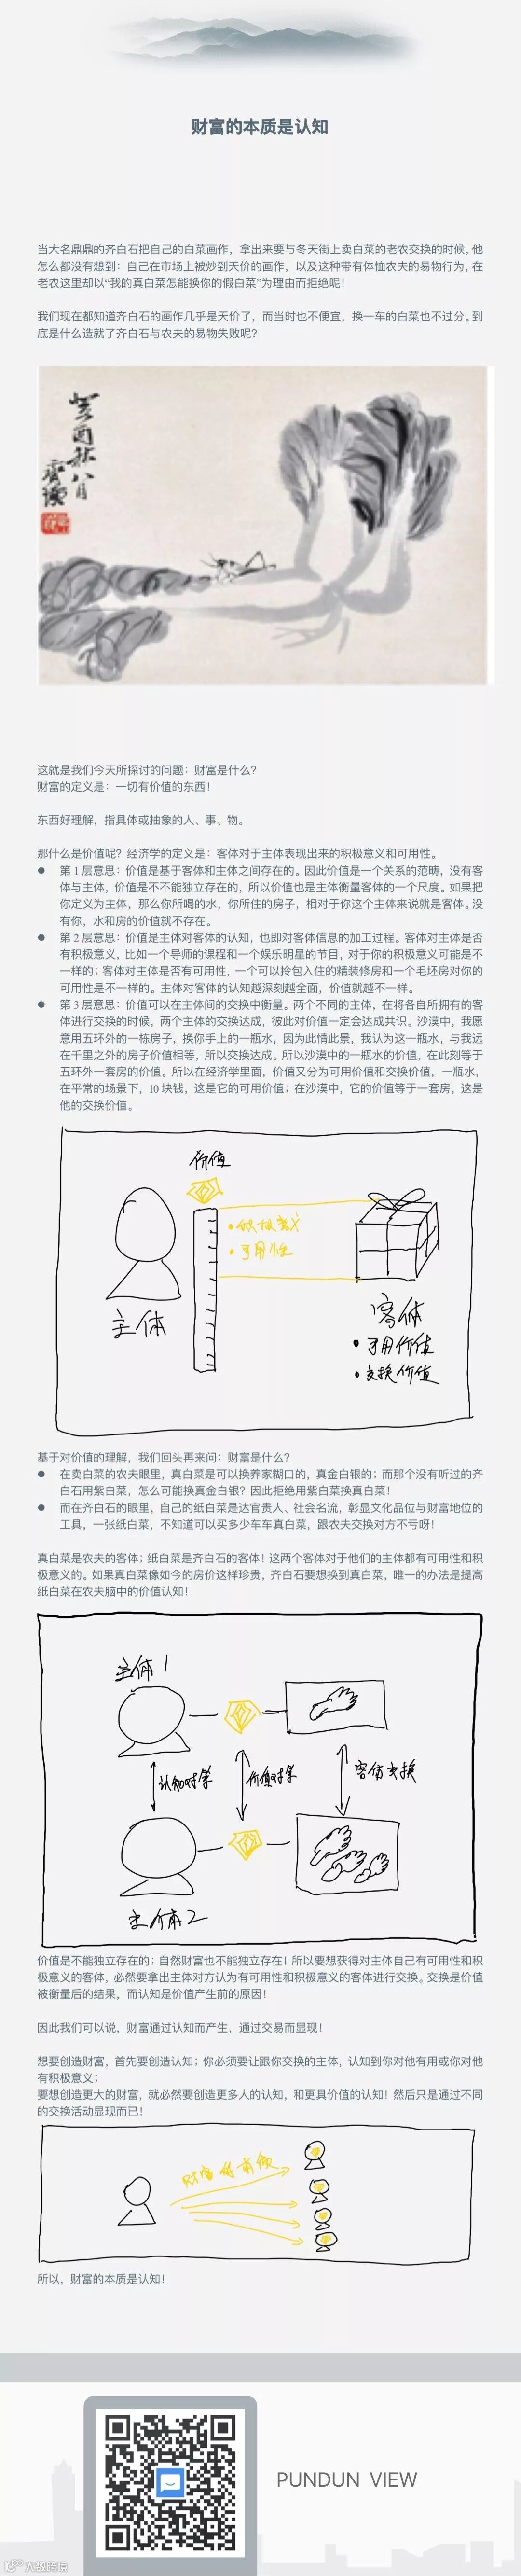 财富的本质是认知
当大名鼎鼎的齐白石把自己的白菜画作，拿出来要与冬天街上卖白菜的老农交换的时候，他
怎么都没有想到：自己在市场上被炒到天价的画作，以及这种带有体恤农夫的易物行为，在
老农这里却以“我的真白菜怎能换你的假白菜”为理由而拒绝呢！
我们现在都知道齐白石的画作几乎是天价了，而当时也不便宜，换一车的白菜也不过分。到
底是什么造就了齐白石与农夫的易物失败呢？
癸酉秋八月
齐璜
这就是我们今天所探讨的问题：财富是什么？
财富的定义是：一切有价值的东西！
东西好理解，指具体或抽象的人、事、物。
那什么是价值呢？经济学的定义是：客体对于主体表现出来的积极意义和可用性。
● 第 1 层意思：价值是基于客体和主体之间存在的。因此价值是一个关系的范畴，没有客
体与主体，价值是不不能独立存在的，所以价值也是主体衡量客体的一个尺度。如果把
你定义为主体，那么你所喝的水，你所住的房子，相对于你这个主体来说就是客体。没
有你，水和房的价值就不存在。
● 第 2 层意思：价值是主体对客体的认知，也即对客体信息的加工过程。客体对主体是否
有积极意义，比如一个导师的课程和一个娱乐明星的节目，对于你的积极意义可能是不
一样的；客体对主体是否有可用性，一个可以拎包入住的精装修房和一个毛坯房对你的
可用性是不一样的。主体对客体的认知越深刻越全面，价值就越不一样。
● 第 3 层意思：价值可以在主体间的交换中衡量。两个不同的主体，在将各自所拥有的客
体进行交换的时候，两个主体的交换达成，彼此对价值一定会达成共识。沙漠中，我愿
意用五环外的一栋房子，换你手上的一瓶水，因为此情此景，我认为这一瓶水，与我远
在千里之外的房子价值相等，所以交换达成。所以沙漠中的一瓶水的价值，在此刻等于
五环外一套房的价值。所以在经济学里面，价值又分为可用价值和交换价值，一瓶水，
在平常的场景下，10 块钱，这是它的可用价值；在沙漠中，它的价值等于一套房，这是
他的交换价值。
价值
•积极意义
•可用性
主体
客体
•可用价值
•交换价值
基于对价值的理解，我们回头再来问：财富是什么？
● 在卖白菜的农夫眼里，真白菜是可以换养家糊口的，真金白银的；而那个没有听过的齐
白石用紫白菜，怎么可能换真金白银？因此拒绝用紫白菜换真白菜！
● 而在齐白石的眼里，自己的纸白菜是达官贵人、社会名流，彰显文化品位与财富地位的
工具，一张纸白菜，不知道可以买多少车车真白菜，跟农夫交换对方不亏呀！
真白菜是农夫的客体；纸白菜是齐白石的客体！这两个客体对于他们的主体都有可用性和积
极意义的。如果真白菜像如今的房价这样珍贵，齐白石要想换到真白菜，唯一的办法是提高
纸白菜在农夫脑中的价值认知！
主体1
认知对等
价值对等
客体交换
主体2
价值是不能独立存在的；自然财富也不能独立存在！所以要想获得对主体自己有可用性和积
极意义的客体，必然要拿出主体对方认为有可用性和积极意义的客体进行交换。交换是价值
被衡量后的结果，而认知是价值产生前的原因！
因此我们可以说，财富通过认知而产生，通过交易而显现！
想要创造财富，首先要创造认知；你必须要让跟你交换的主体，认知到你对他有用或你对他
有积极意义；
要想创造更大的财富，就必然要创造更多人的认知，和更具价值的认知！然后只是通过不同
的交换活动显现而已！
所以，财富的本质是认知！
PUNDUN VIEW